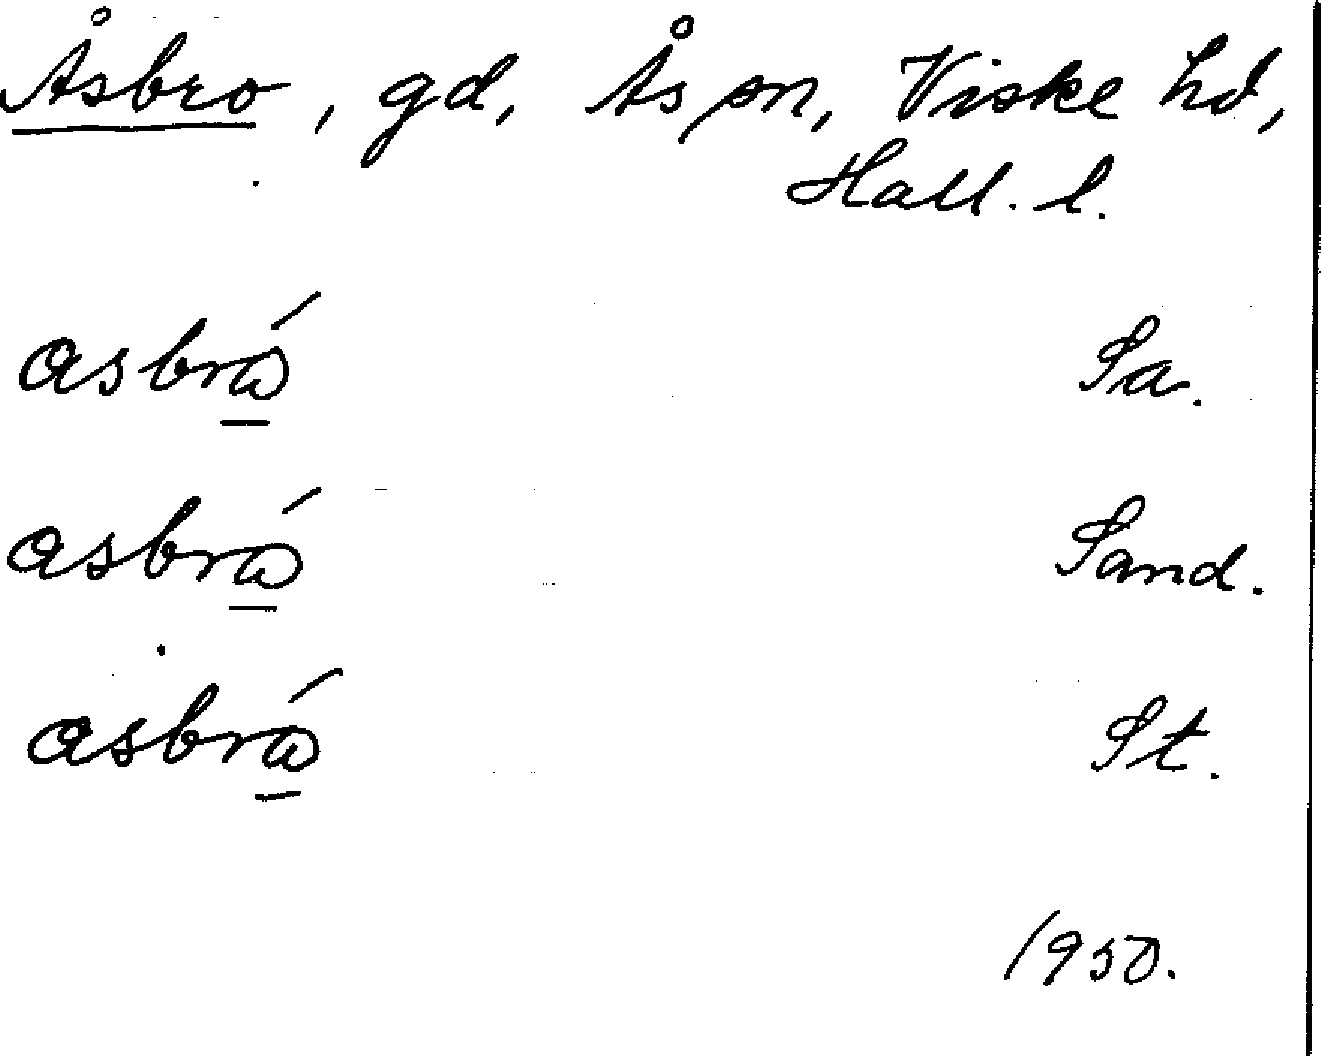 Åsbro, gd, Ås sn, Viske hd,
Hall. l.
asbrá Sa.
asbrá Sand.
asbrá St.
1950.